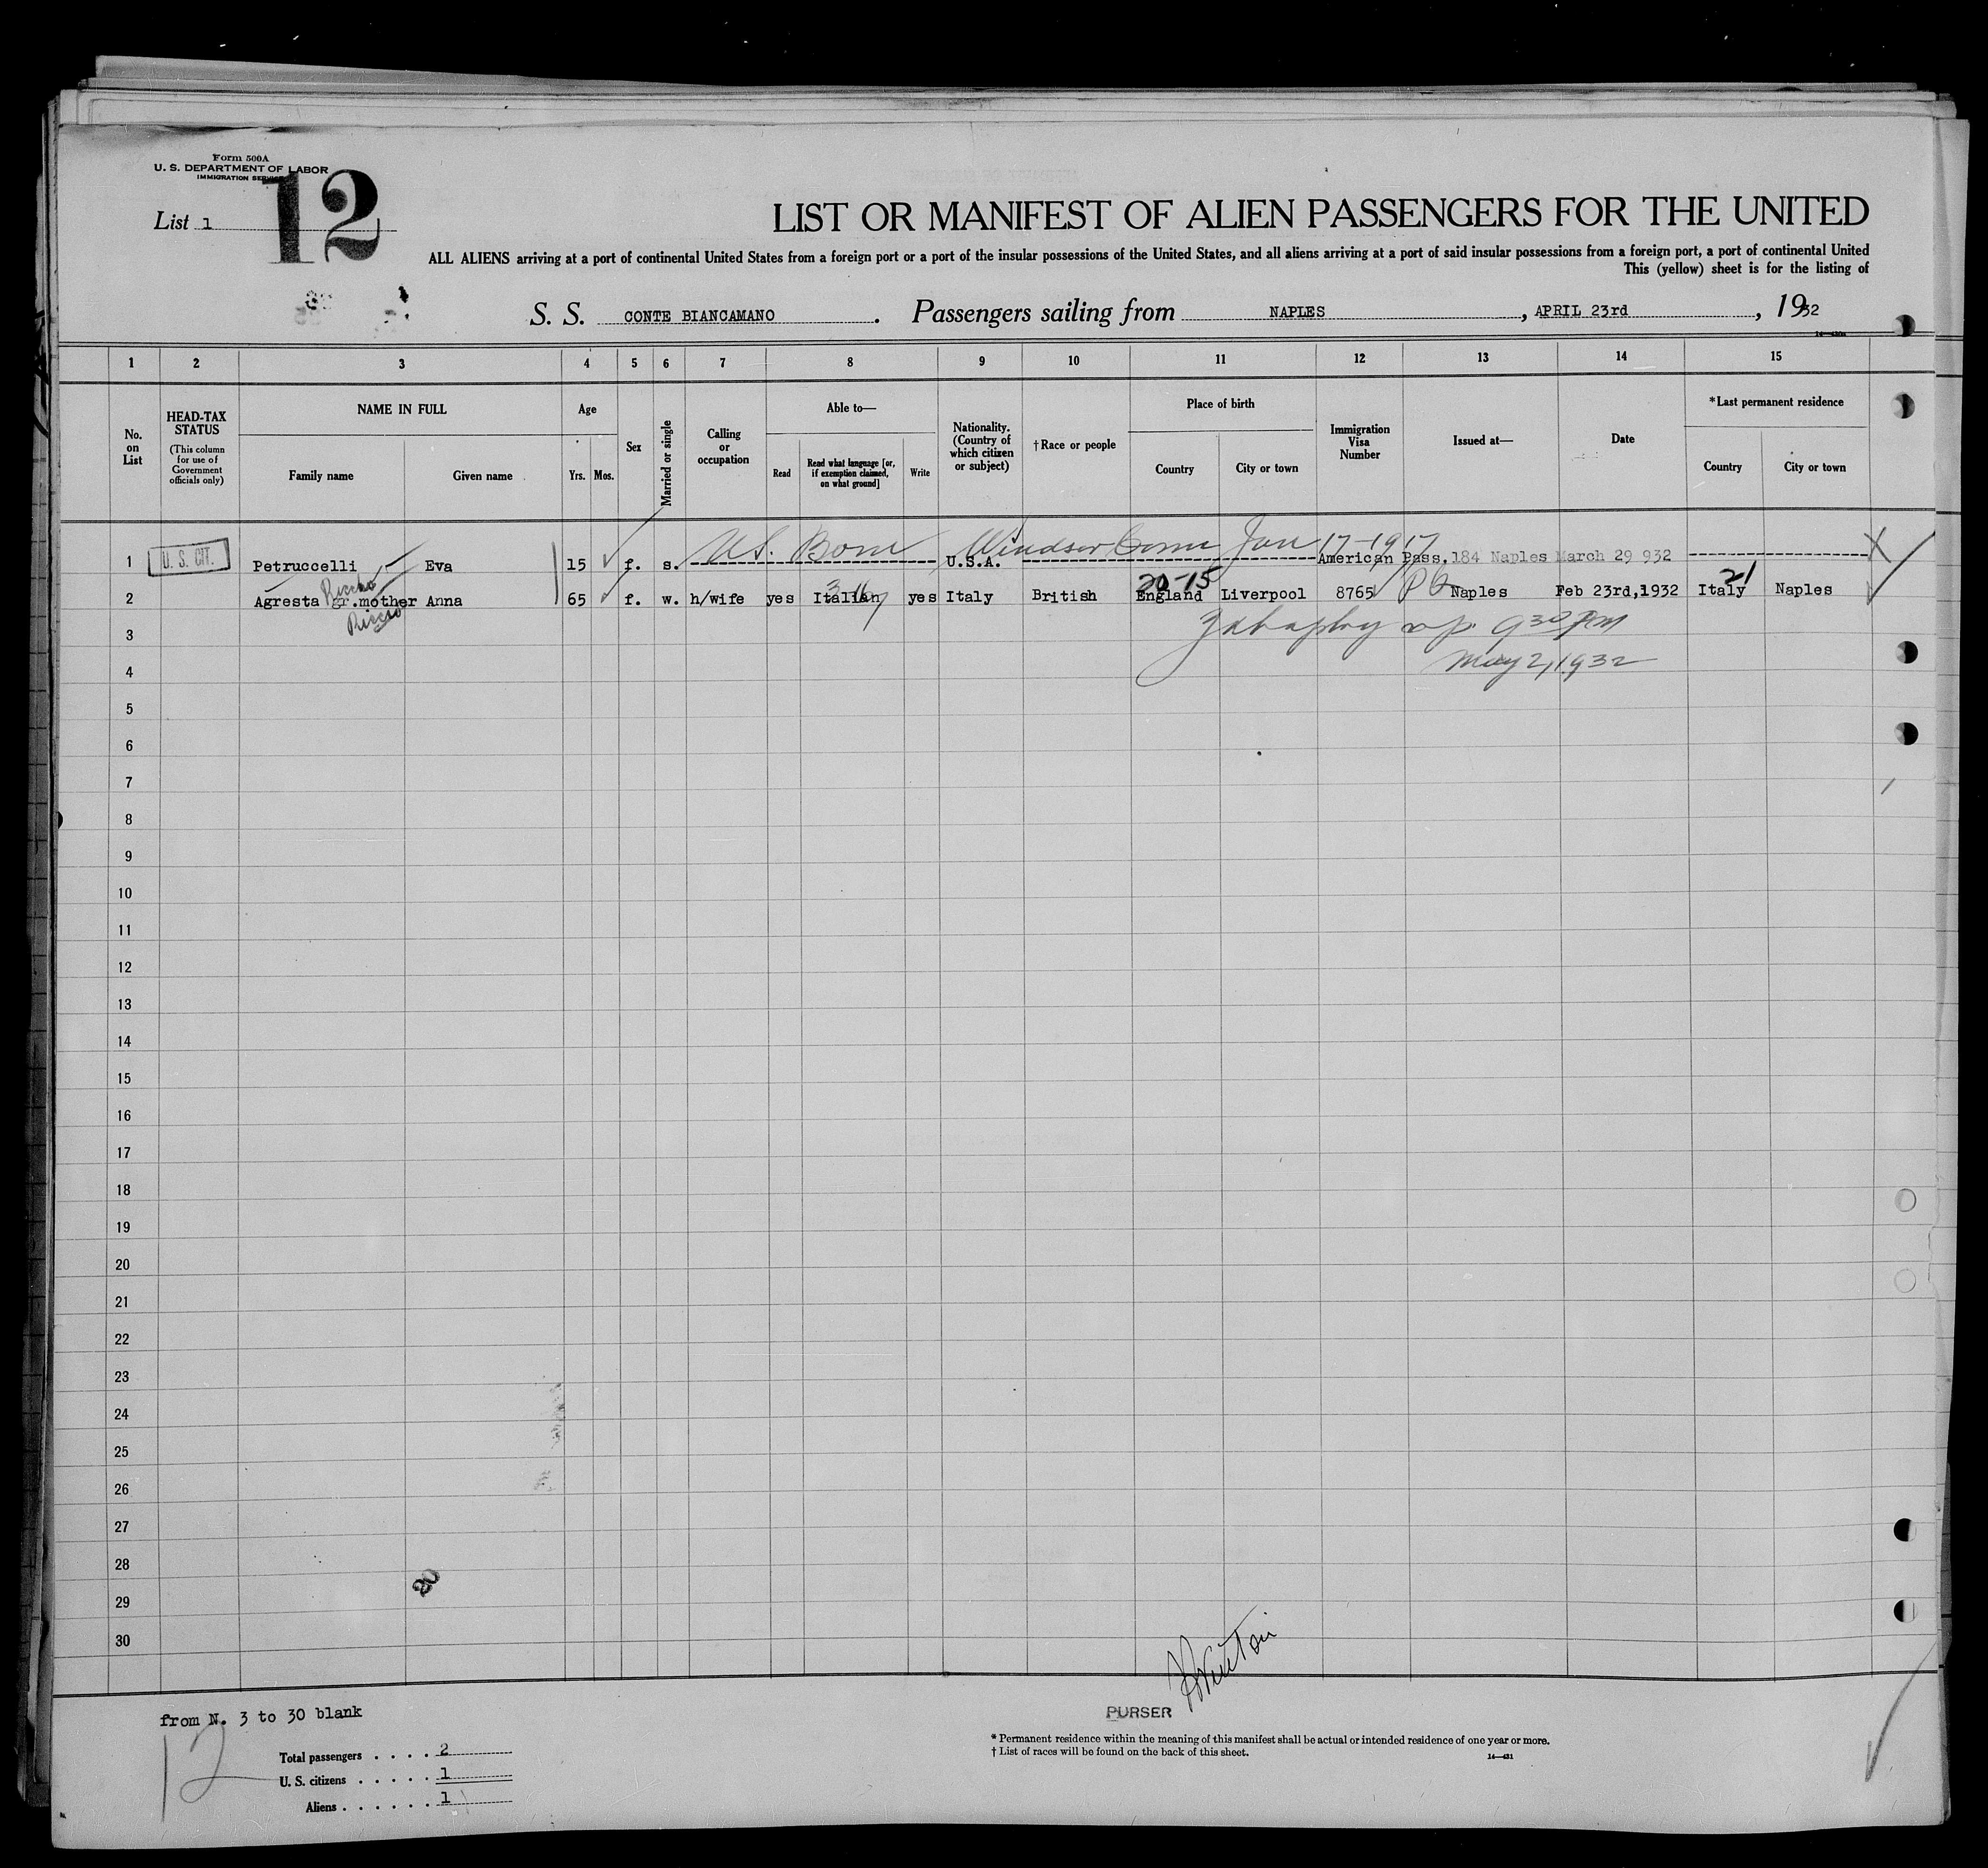 Form 500A
U. S. DEPARTMENT OF LABOR
IMMIGRATION SERVICE
12
List 1
LIST OR MANIFEST OF ALIEN PASSENGERS FOR THE UNITED
ALL ALIENS arriving at a port of continental United States from a foreign port or a port of the insular possessions of the United States, and all aliens arriving at a port of said insular possessions from a foreign port, a port of continental United
This (yellow) sheet is for the listing of
S. S. CONTE BIANCAMANO. Passengers sailing from NAPLES, APRIL 23rd, 1932
1 2 3 4 5 6 7 8 9 10 11 12 13 14 15
No. on List
HEAD-TAX STATUS (This column for use of Government officials only)
NAME IN FULL
Family name Given name
Age
Yrs. Mos.
Sex
Married or single
Calling or occupation
Able to—
Read
Read what language [or, if exemption claimed, on what ground]
Write
Nationality. (Country of which citizen or subject)
†Race or people
Place of birth
Country City or town
Immigration Visa Number
Issued at—
Date
*Last permanent residence
Country City or town
US. Born Windsor Conn Jan 17-1917
1 U. S. CIT. Petruccelli Eva 15 f. s. U.S.A. American Pass. 184 Naples March 29 932 X
Riccio 20-15 21
2 Agresta gr.mother Anna 65 f. w. h/wife yes Italian yes Italy British England Liverpool 8765 Naples Feb 23rd,1932 Italy Naples
Riccio
3 9 30 PM
4 May 2, 1932
5
6
7
8
9
10
11
12
13
14
15
16
17
18
19
20
21
22
23
24
25
26
27
28
29
30
20
from N. 3 to 30 blank
12
Total passengers . . . . 2
U. S. citizens . . . . . 1
Aliens . . . . . . 1
PURSER
* Permanent residence within the meaning of this manifest shall be actual or intended residence of one year or more.
† List of races will be found on the back of this sheet.
14—421